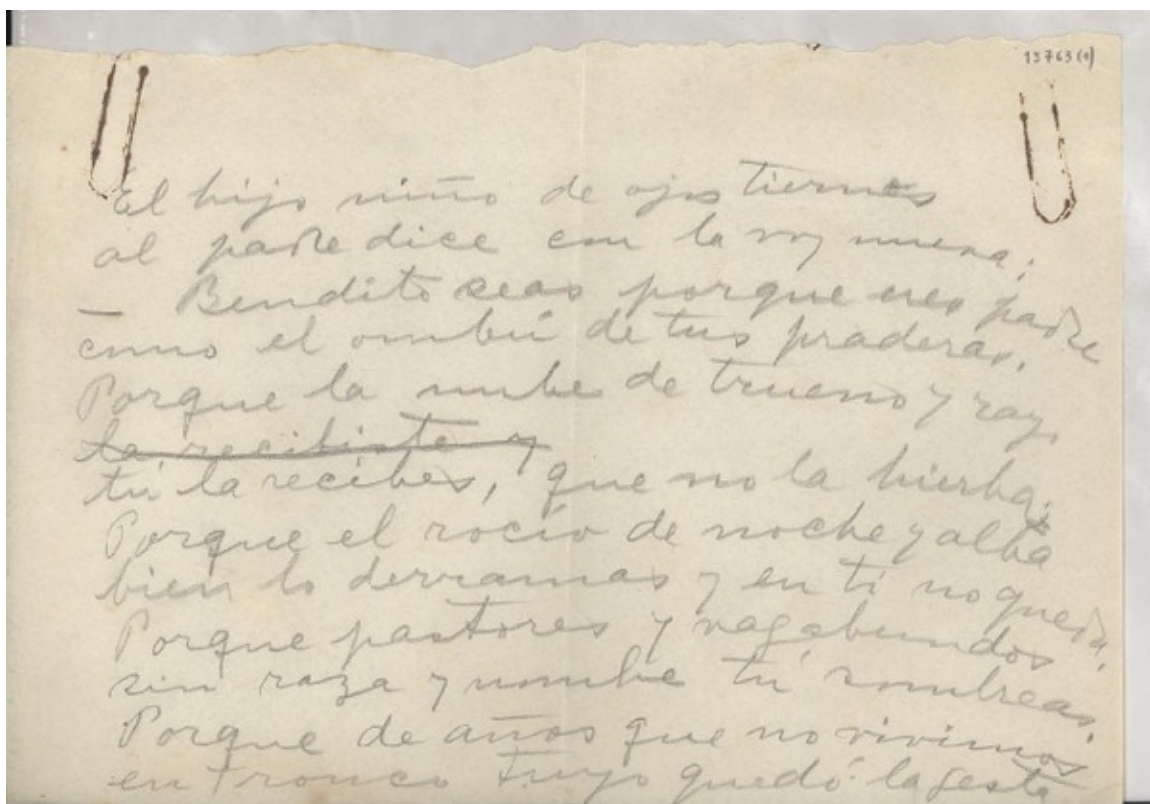 13763(1)
El hijo niño de ojos tiernos
al padre dice con la voz nueva:
— Bendito seas porque eres padre
como el ombú de tus praderas.
Porque la nube de trueno y rayo
la recibiste y
tú la recibes, que no la hierba.
Porque el rocío de noche y alba
bien lo derramas y en ti no queda.
Porque pastores y vagabundos
sin raza y nombre tú sombreas.
Porque de años que no vivimos
en tronco tuyo quedó la gesta